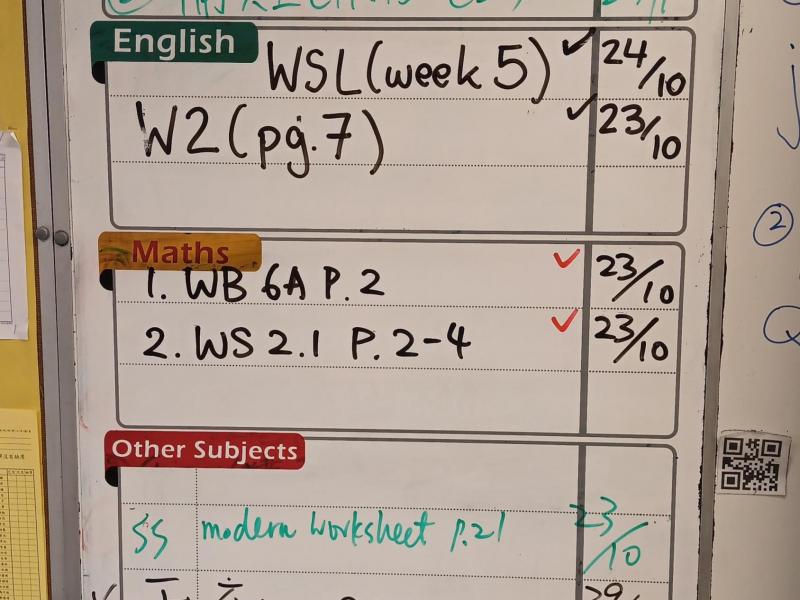 English
WSL (week 5) ✓ 24/10
W2 (pg. 7) ✓ 23/10
Maths
1. WB 6A P. 2 ✓ 23/10
2. WS 2.1 P. 2-4 ✓ 23/10
Other Subjects
SS modern worksheet p.21 23/10
②